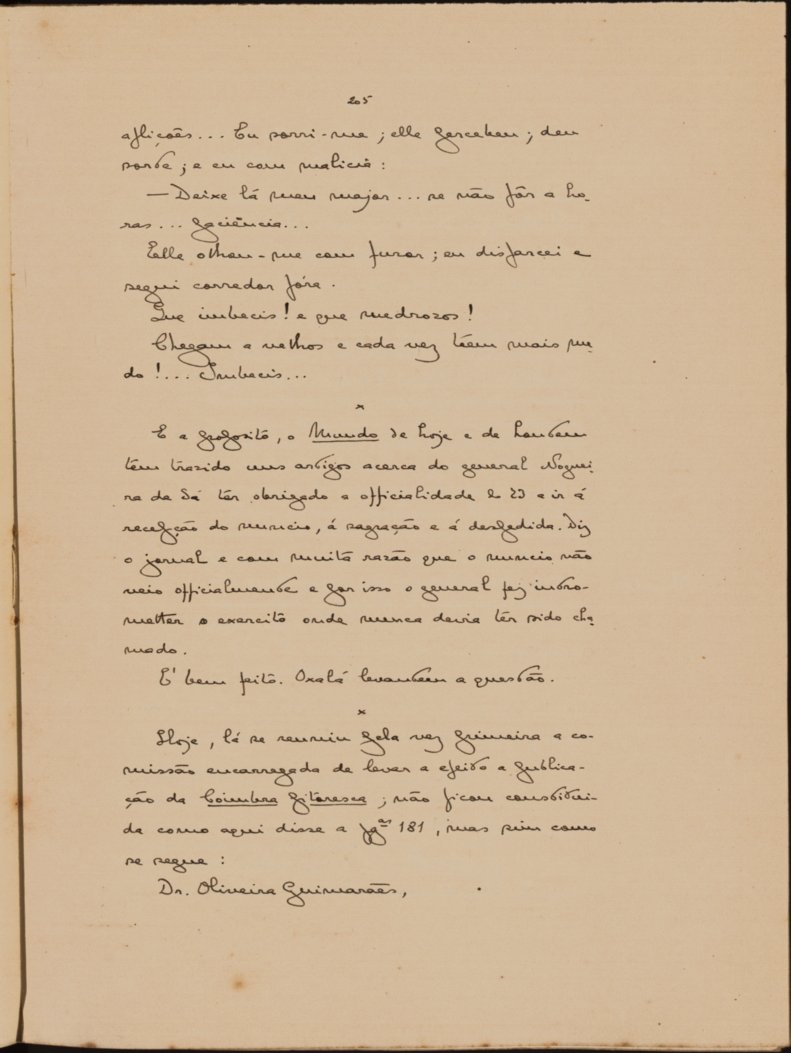 205
aflições... Eu sorri-me; elle percebeu; deu
sorte; e eu com malicia:
— Deixe lá meu major... se não fôr a ho-
ras... paciência...
Elle olhou-me com furor; eu disfarcei e
segui corredor fóra.
Que imbecis! e que medrosos!
Chegam a velhos e cada vez teem mais me-
do!... Imbecis...
×
E a proposito, o Mundo de hoje e de hontem
têm trazido uns artigos acerca do general Noguei-
ra de Sá têr obrigado a officialidade do 23 a ir á
recepção do nuncio, á sagração e á despedida. Diz
o jornal e com muita razão que o nuncio não
veio officialmente e por isso o general fez intro-
metter o exercito onde nunca devia têr sido cha-
mado.
E' bem feito. Oxalá levantem a questão.
×
Hoje, lá se reuniu pela vez primeira a co-
missão encarregada de levar a efeito a publica-
ção da Coimbra pitoresca; não ficou constitui-
da como aqui disse a pg.as 181, mas sim como
se segue:
Dr. Oliveira Guimarães,